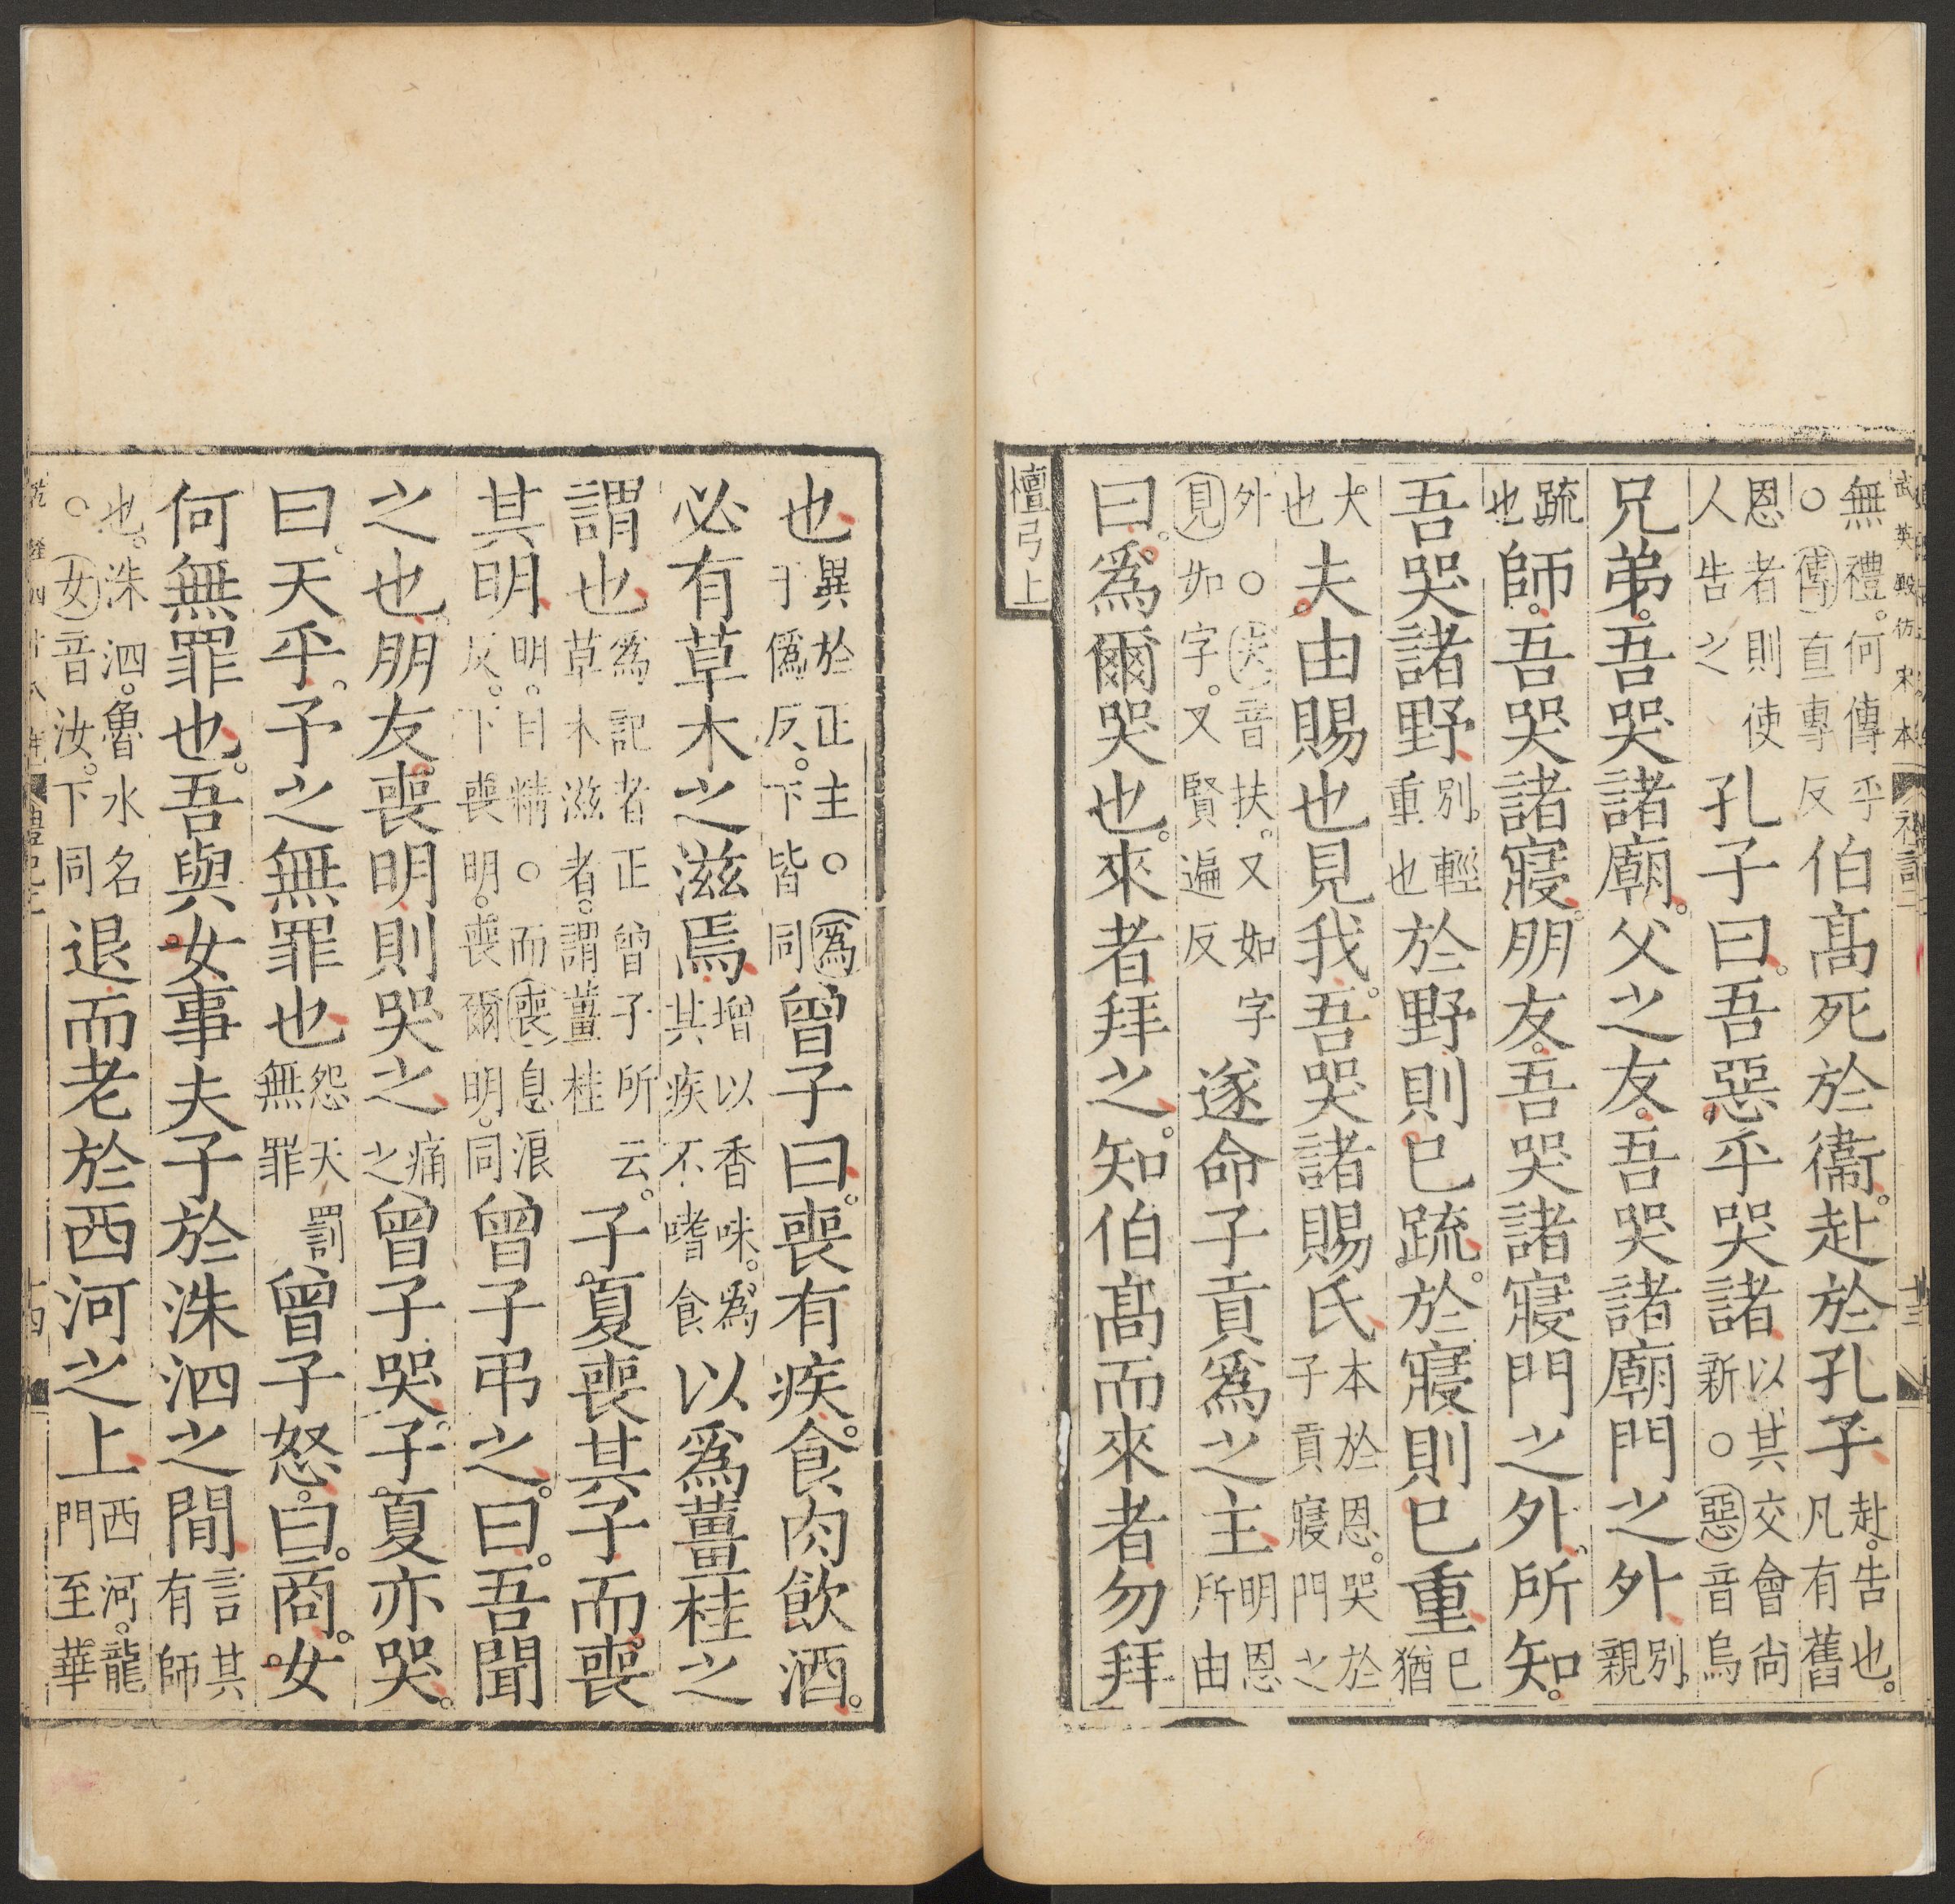 武英殿仿宋本
無禮。何傳乎
○傳直專反
伯髙死於衞。赴於孔子
赴。告也。
凡有舊
恩者則使
人告之
孔子曰。吾惡乎哭諸
以其交會尚
新○惡音烏
兄弟。吾哭諸廟。父之友。吾哭諸廟門之外
別。
親
疏
也
師。吾哭諸寢。朋友。吾哭諸寢門之外、所知。
吾哭諸野
別。輕
重也
於野則已疏。於寢則已重
已
猶
大
也
夫。由賜也見我。吾哭諸賜氏
本於恩。哭於
子貢寢門之
外○夫音扶。又如字
見如字。又賢遍反
遂命子貢爲之主
明恩
所由
曰。爲爾哭也。來者拜之。知伯髙而來者勿拜
檀弓上
也
異於正主○爲
于僞反。下皆同
曾子曰。喪有疾。食肉飮酒。
必有草木之滋焉
增以香味。爲
其疾不嗜食
以爲薑桂之
謂也
爲記者正曾子所云。
草木滋者。謂薑桂
子夏喪其子而喪
其明
明。目精○而喪息浪
反。下喪明。喪爾明。同
曾子弔之。曰。吾聞
之也。朋友喪明則哭之
痛
之
曾子哭。子夏亦哭。
曰。天乎。予之無罪也
怨天罰
無罪
曾子怒。曰。商。女
何無罪也。吾與女事夫子於洙泗之間
言其
有師
也。洙泗。魯水名
○女音汝。下同
退而老於西河之上
西河。龍
門至華